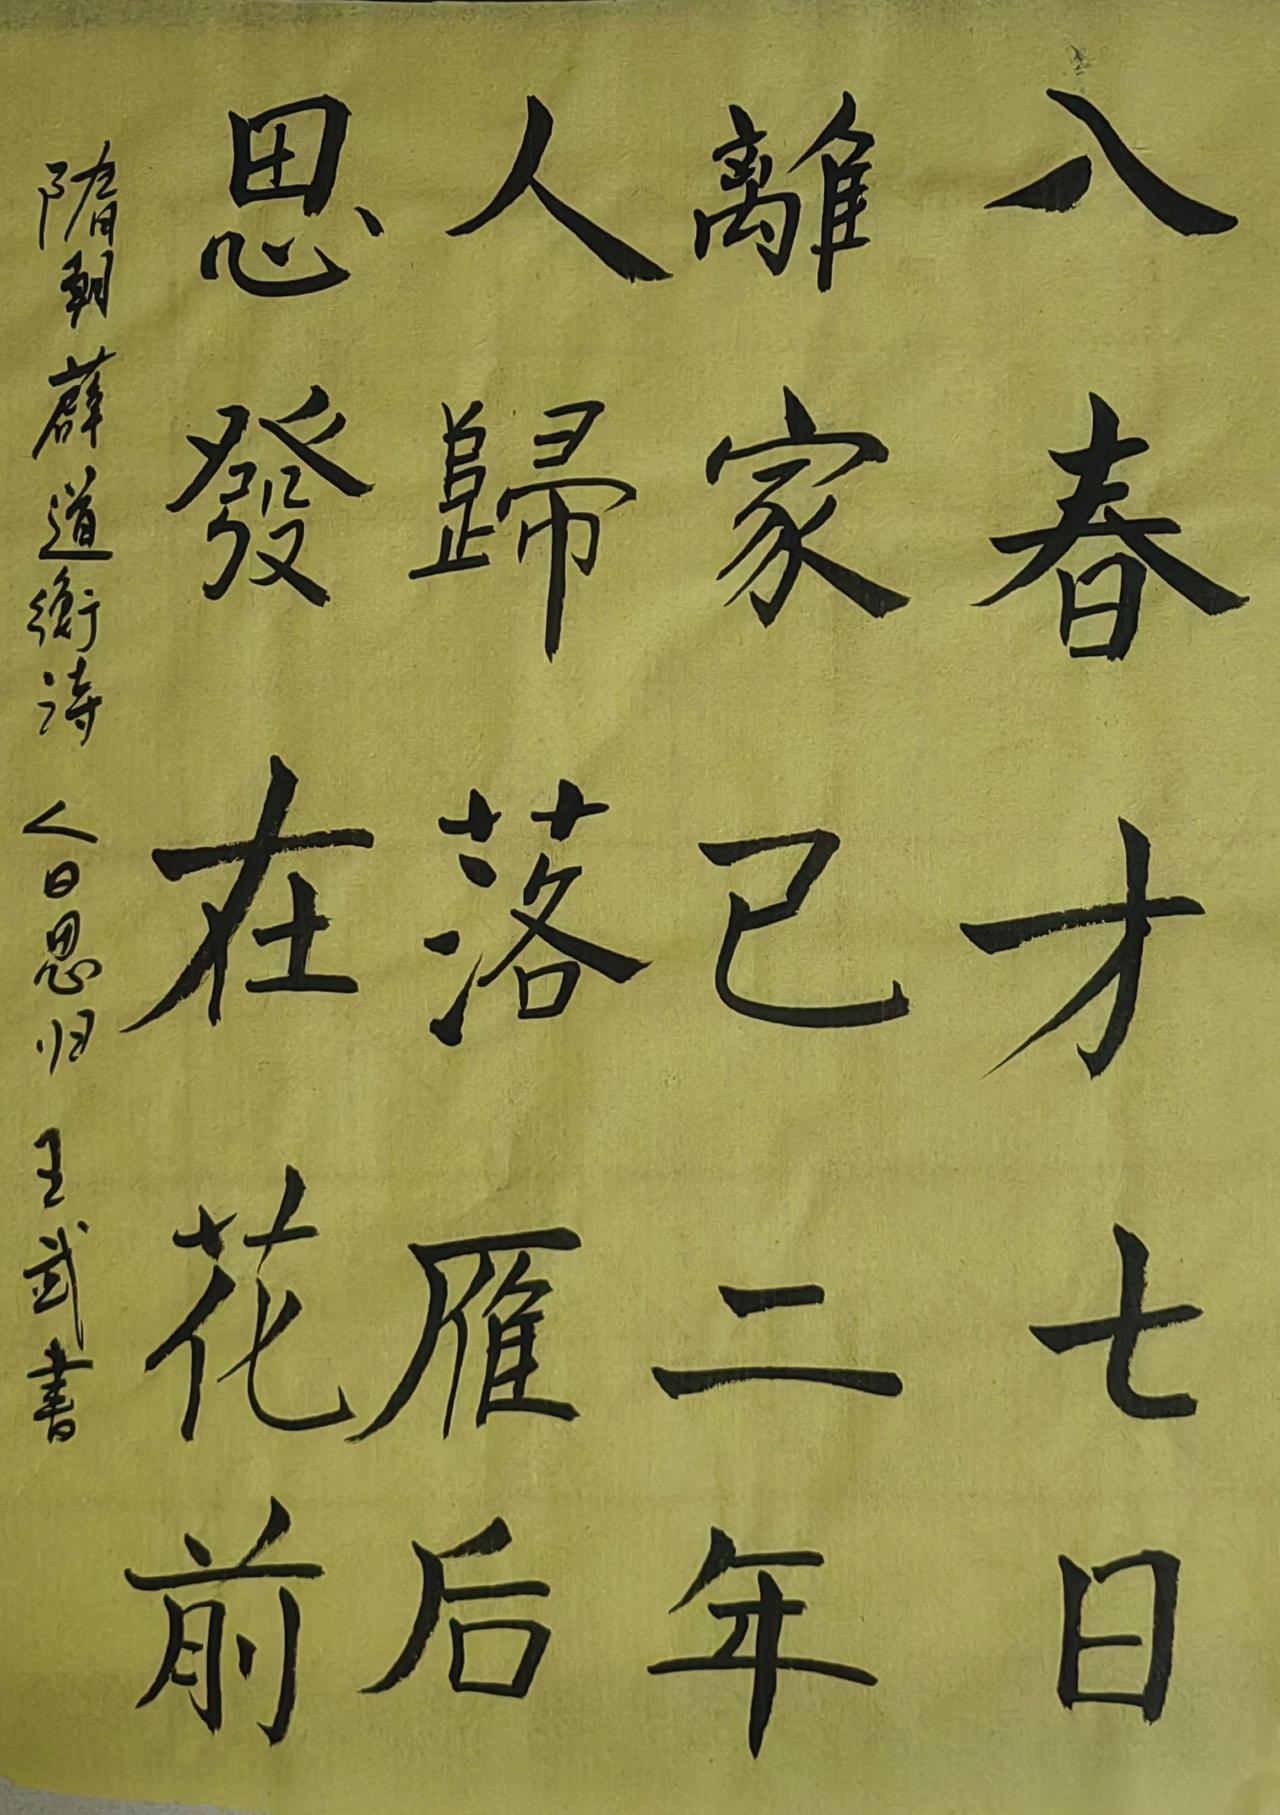 入春才七日
離家已二年
人歸落雁后
思發在花前
隋朝薛道衡诗 人日思归 王武書